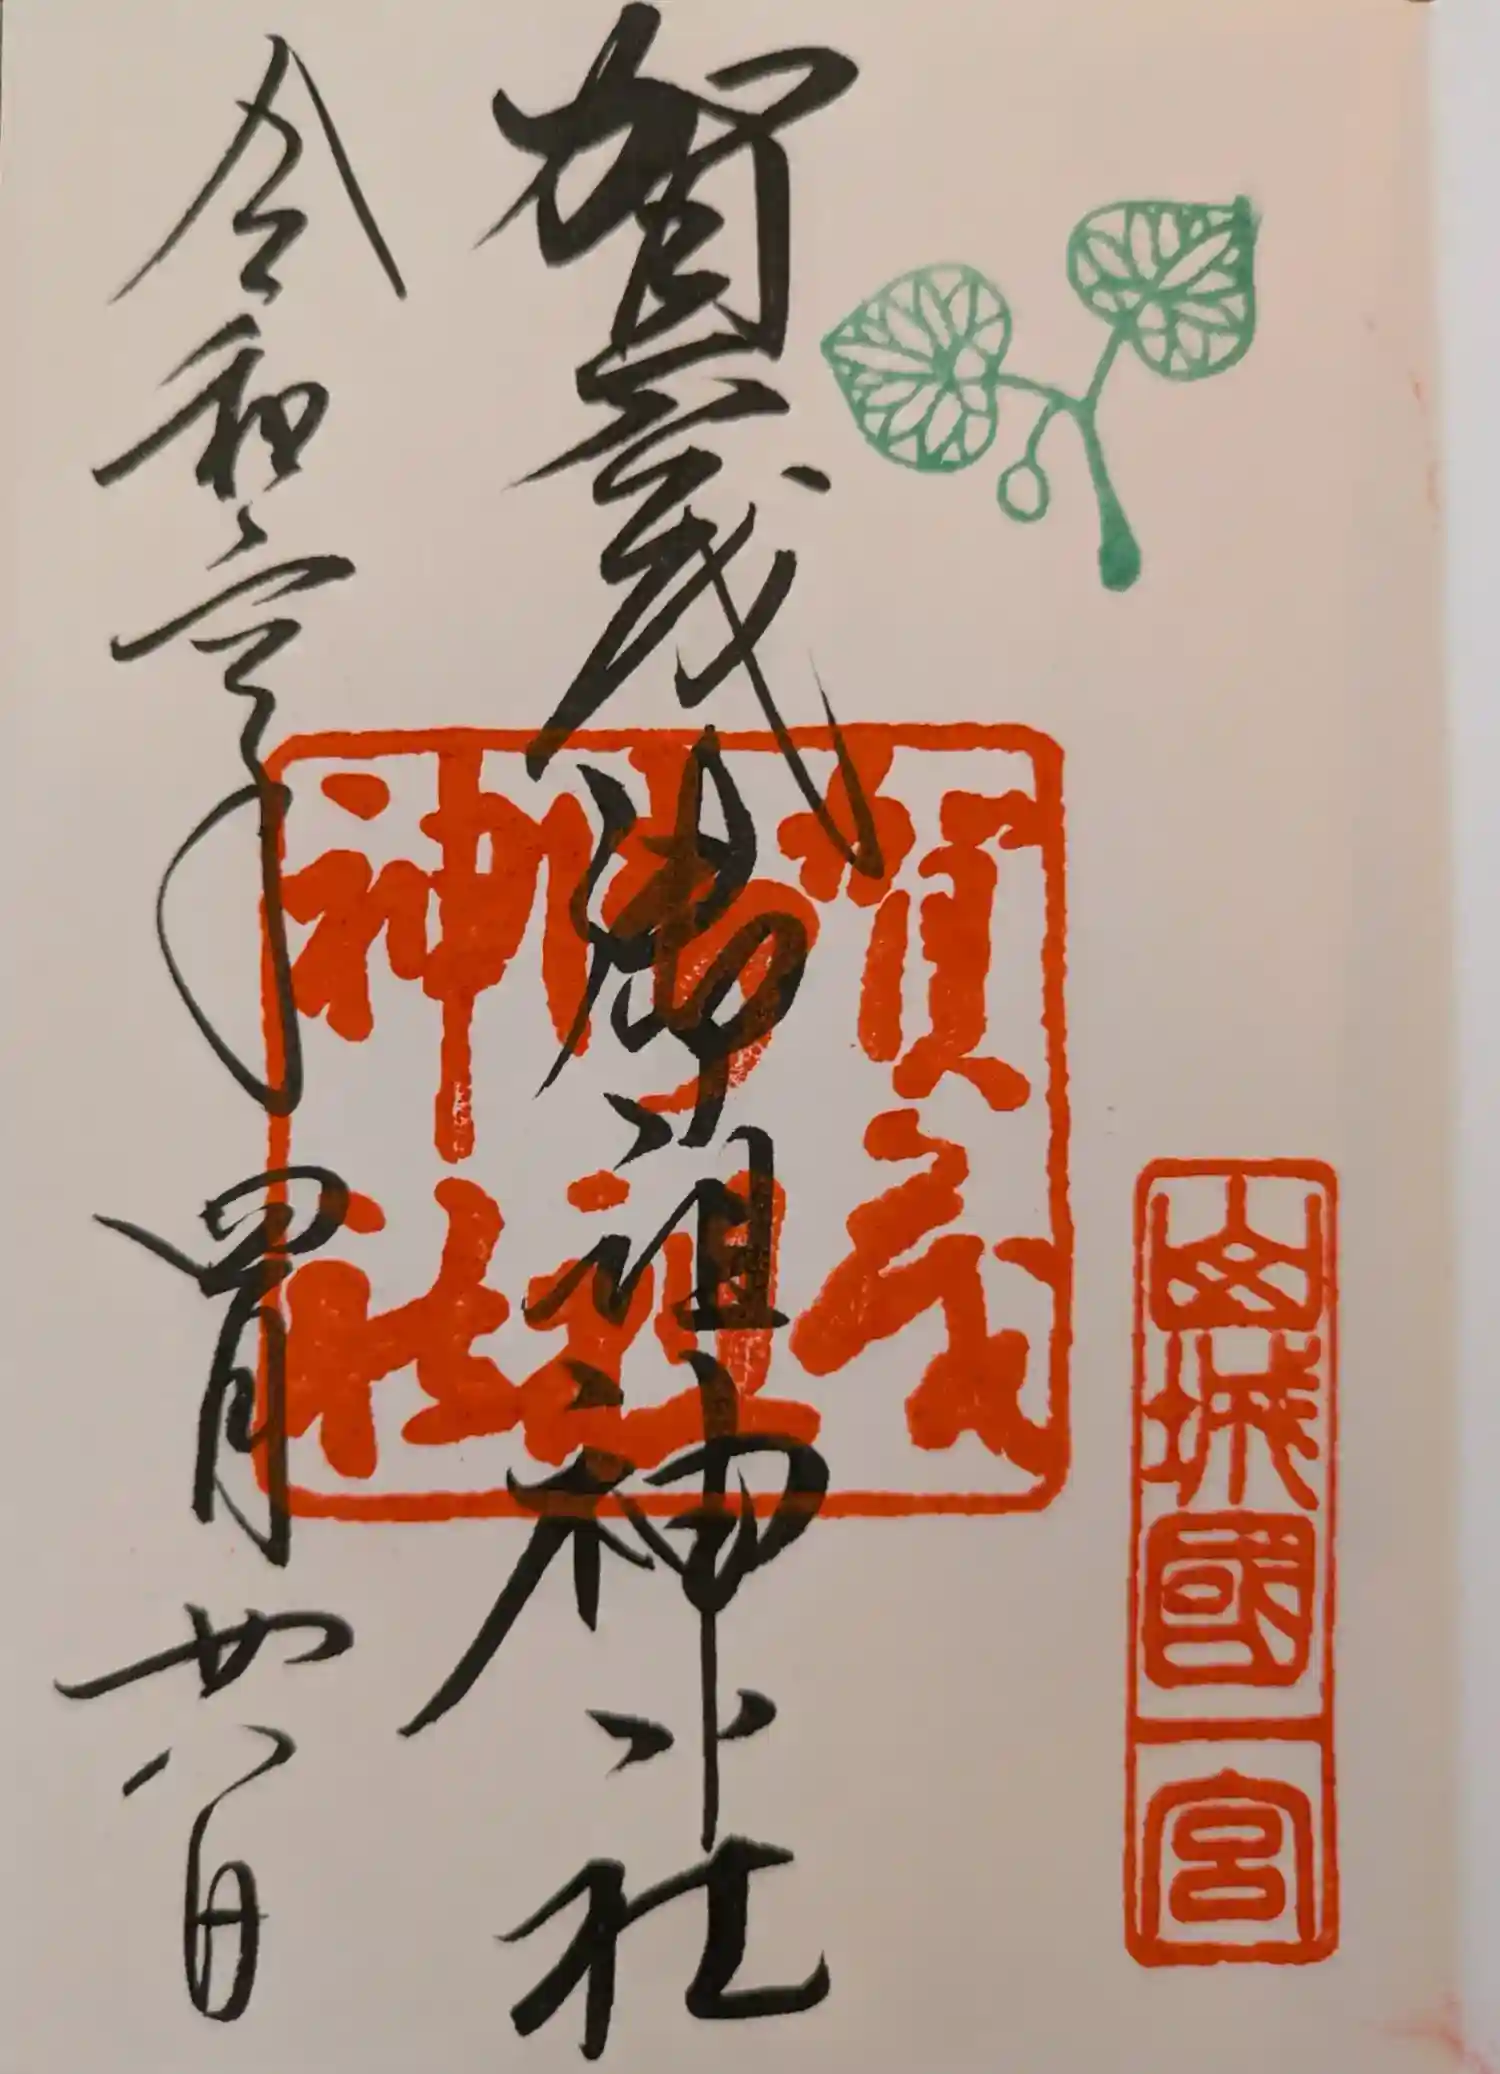 山城國一宮
賀茂御祖神社
賀茂
御祖
神社
令和六年四月廿八日